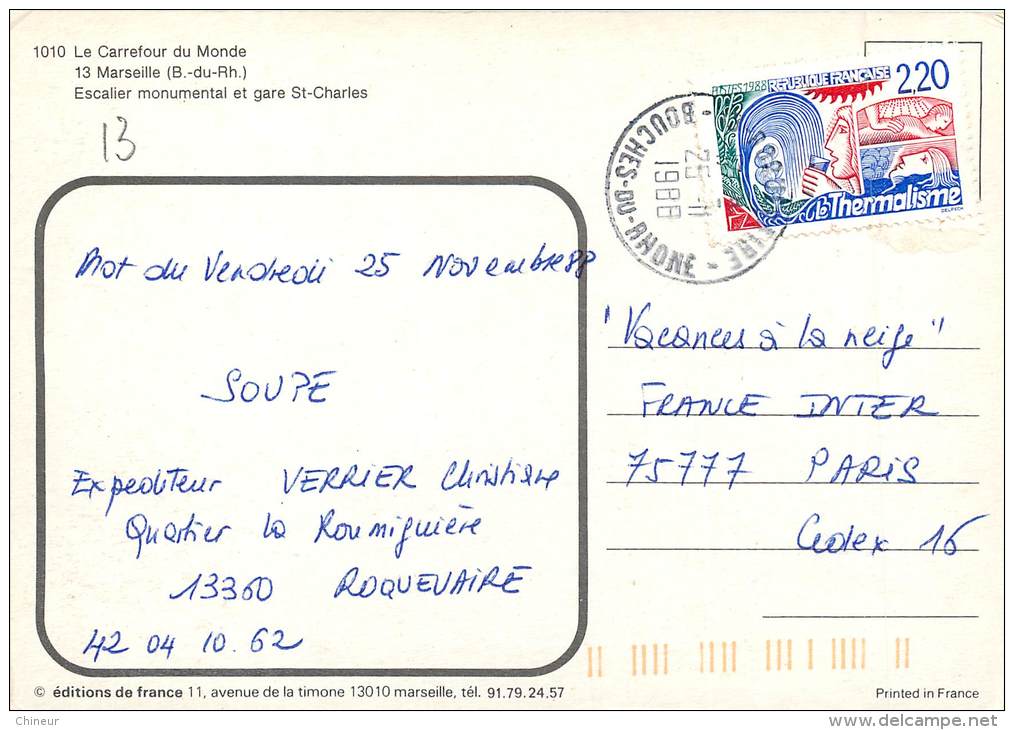 1010 Le Carrefour du Monde
13 Marseille (B.-du-Rh.)
Escalier monumental et gare St-Charles
13
POSTES 1988 REPUBLIQUE FRANÇAISE 2,20
Thermalisme
DELPECH
BOUCHES-DU-RHONE
25-11
1988
Mot du Vendredi 25 Novembre 88
SOUPE
Expediteur VERRIER Christiane
Quartier la Roumiguière
13360 ROQUEVAIRE
42 04 10.62
"Vacances à la neige"
FRANCE INTER
75777 PARIS
Cedex 16
© éditions de france 11, avenue de la timone 13010 marseille, tél. 91.79.24.57
Printed in France
Chineur
www.delcampe.net